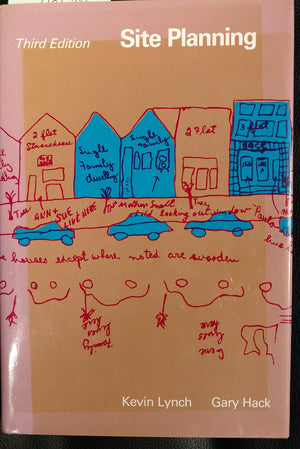 Third Edition
Site Planning
2 flat
Stonehouse
Single
Family
dwelling
Single
Family
2 flat
3 flat
Tree
ANN +
SUE
LIVE HERE
Mother Small
child looking out window
Tree
Paula
houses except where noted are wooden
Family
lives
here
Gene
lives
here
Kevin Lynch Gary Hack